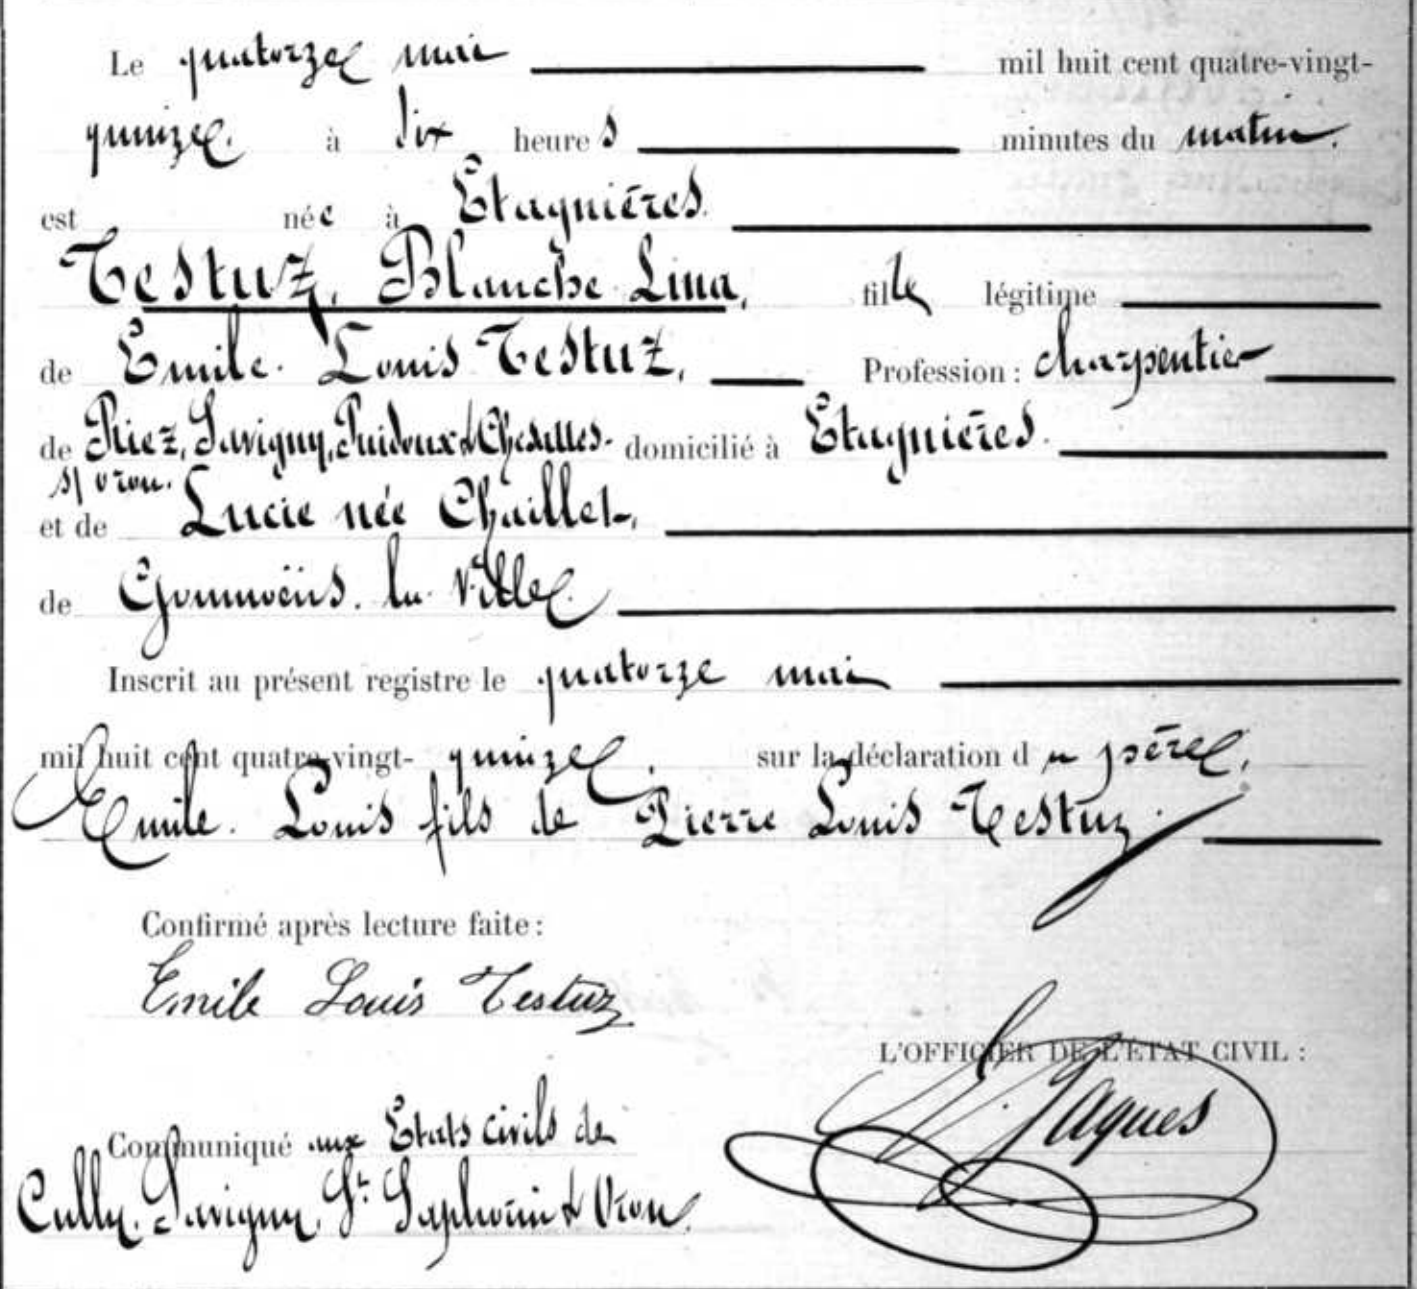 Le quatorze mai mil huit cent quatre-vingt-
quinze. à six heures minutes du matin.
est née à Etagnières.
Testuz, Blanche Lina, fille légitime
de Emile Louis Testuz, Profession: charpentier
de Riez, Savigny, Puidoux & Chesalles domicilié à Etagnières.
s/ Oron.
et de Lucie née Chaillet,
de Goumoëns la Ville
Inscrit au présent registre le quatorze mai
mil huit cent quatre-vingt- quinze. sur la déclaration du père,
Emile Louis fils de Pierre Louis Testuz.
Confirmé après lecture faite:
Emile Louis Testuz
L'OFFICIER DE L'ÉTAT CIVIL:
Jaques
Communiqué aux Etats civils de
Cully, Savigny, St. Saphorin & Oron.